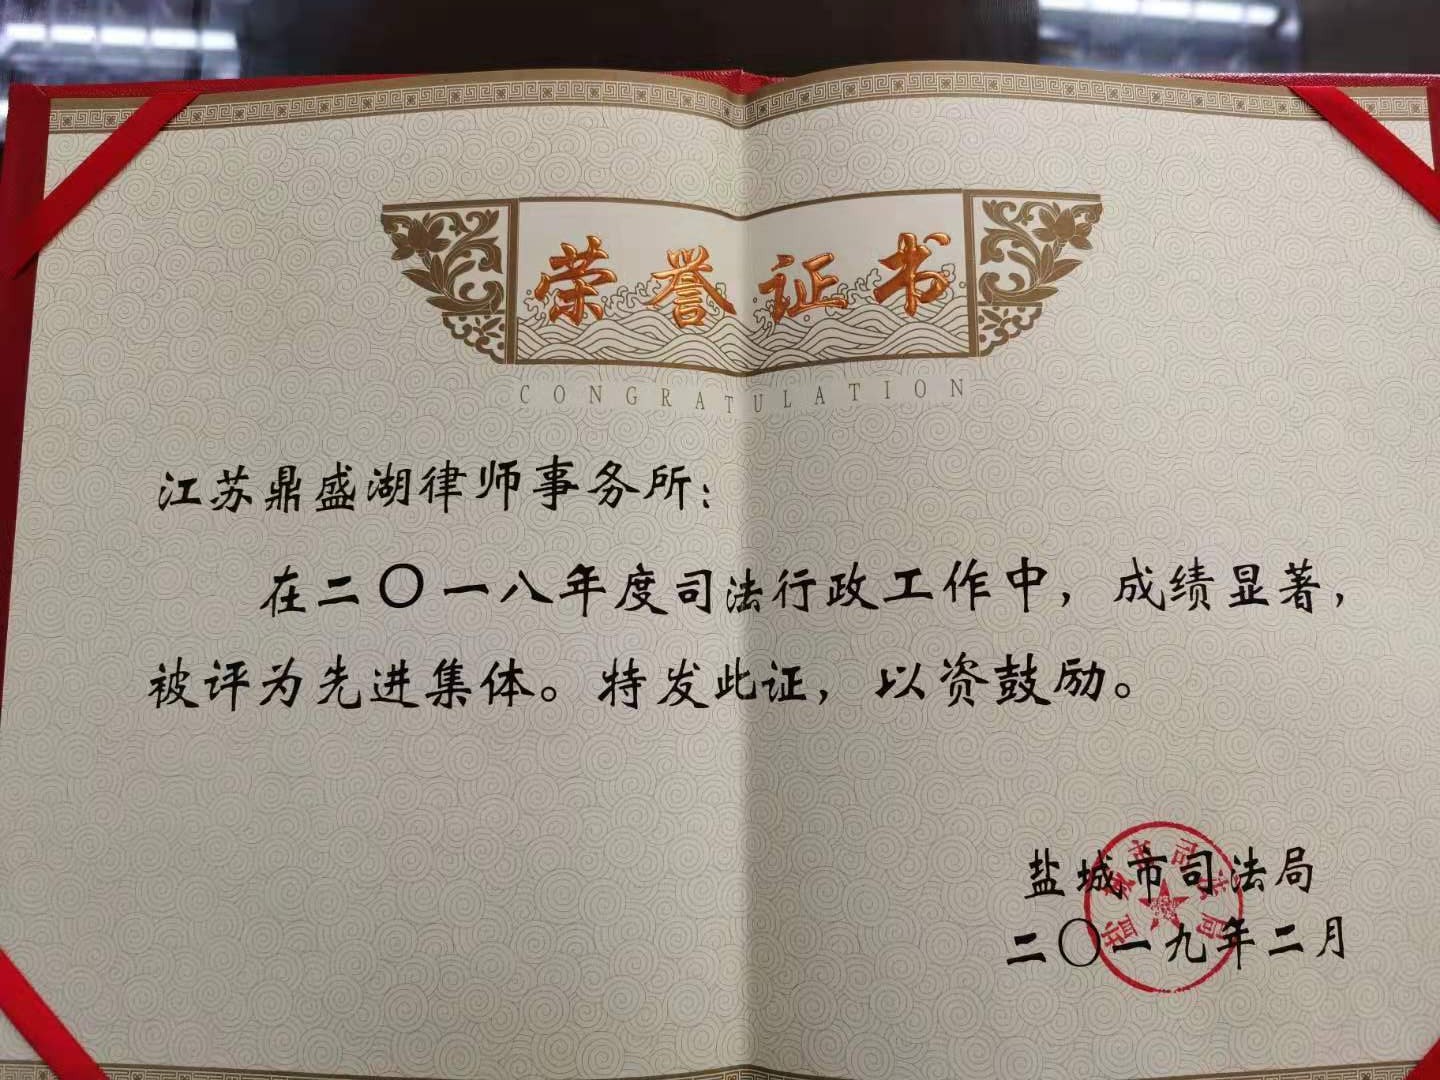 荣誉证书
CONGRATULATION
江苏鼎盛湖律师事务所：
在二〇一八年度司法行政工作中，成绩显著，
被评为先进集体。特发此证，以资鼓励。
盐城市司法局
二〇一九年二月
盐城市司法局